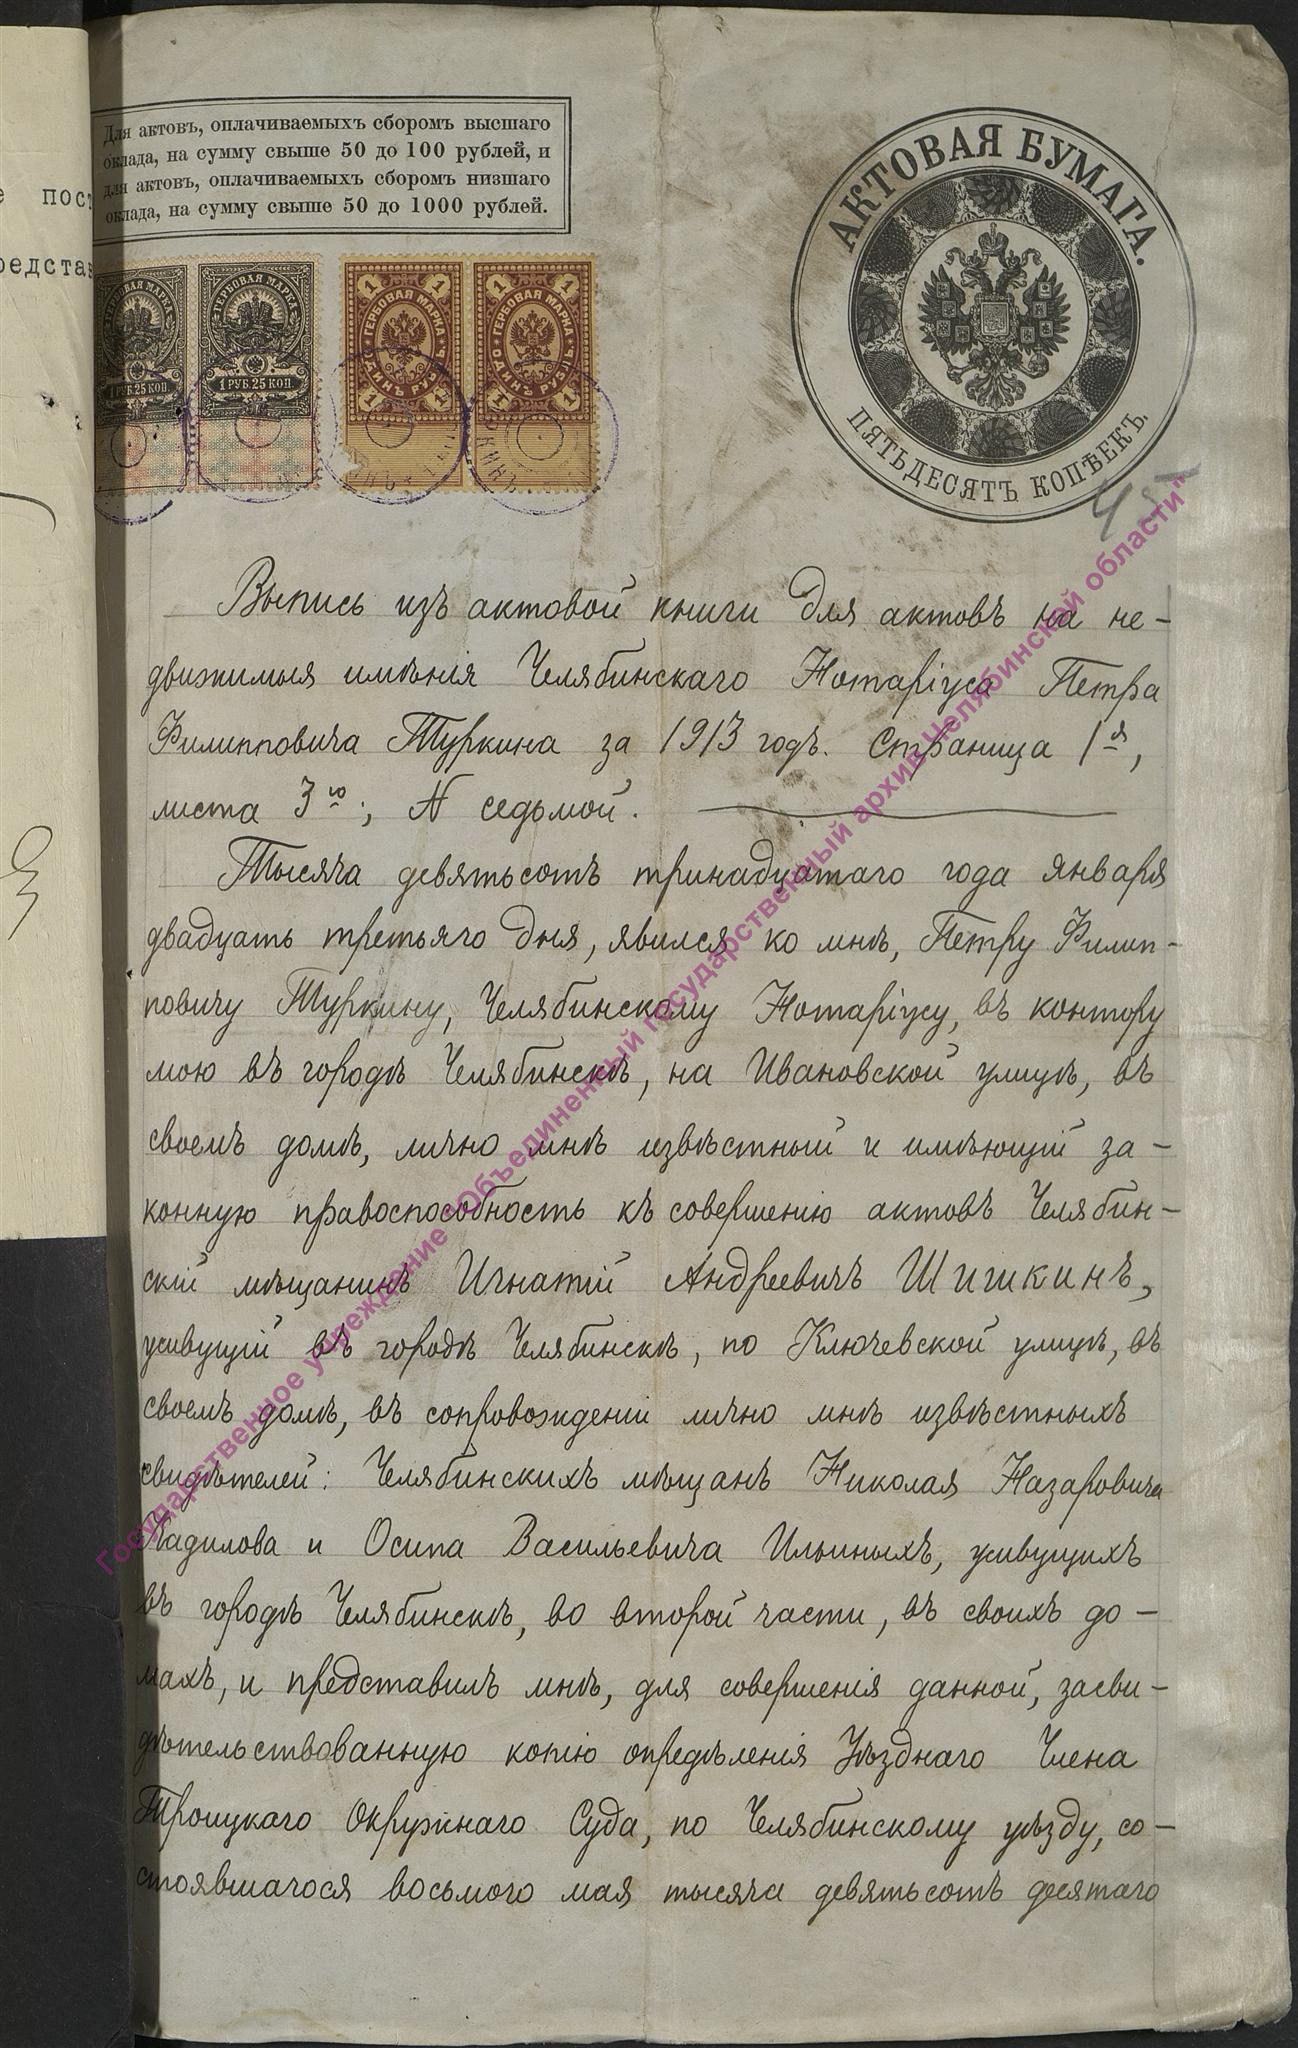 Для актовъ, оплачиваемыхъ сборомъ высшаго
оклада, на сумму свыше 50 до 100 рублей, и
для актовъ, оплачиваемыхъ сборомъ низшаго
оклада, на сумму свыше 50 до 1000 рублей.
АКТОВАЯ БУМАГА.
ПЯТЬДЕСЯТЪ КОПѢЕКЪ.
ГЕРБОВАЯ МАРКА
1 РУБ. 25 КОП.
ГЕРБОВАЯ МАРКА
1 РУБ. 25 КОП.
ГЕРБОВАЯ МАРКА
ОДИНЪ РУБЛЬ
ГЕРБОВАЯ МАРКА
ОДИНЪ РУБЛЬ
45
Выпись изъ актовой книги для актовъ на не-
движимыя имѣнія Челябинскаго Нотаріуса Петра
Филипповича Туркина за 1913 годъ. Страница 1я,
листа 3го; N седьмой.
Тысяча девятьсотъ тринадцатаго года января
двадцать третьяго дня, явился ко мнѣ, Петру Филип-
повичу Туркину, Челябинскому Нотаріусу, въ контору
мою въ городѣ Челябинскѣ, на Ивановской улицѣ, въ
своемъ домѣ, лично мнѣ извѣстный и имѣющій за-
конную правоспособность къ совершенію актовъ Челябин-
скій мѣщанинъ Игнатій Андреевичъ Шишкинъ,
живущій въ городѣ Челябинскѣ, по Ключевской улицѣ, въ
своемъ домѣ, въ сопровожденіи лично мнѣ извѣстныхъ
свидѣтелей: Челябинскихъ мѣщанъ Николая Назаровича
Кадилова и Осипа Васильевича Ильиныхъ, живущихъ
въ городѣ Челябинскѣ, во второй части, въ своихъ до-
махъ, и представилъ мнѣ, для совершенія данной, засви-
дѣтельствованную копію опредѣленія Уѣзднаго Члена
Троицкаго Окружнаго Суда, по Челябинскому уѣзду, со-
стоявшагося восьмого мая тысяча девятьсотъ десятаго
Государственное учреждение "Объединенный государственный архив Челябинской области"